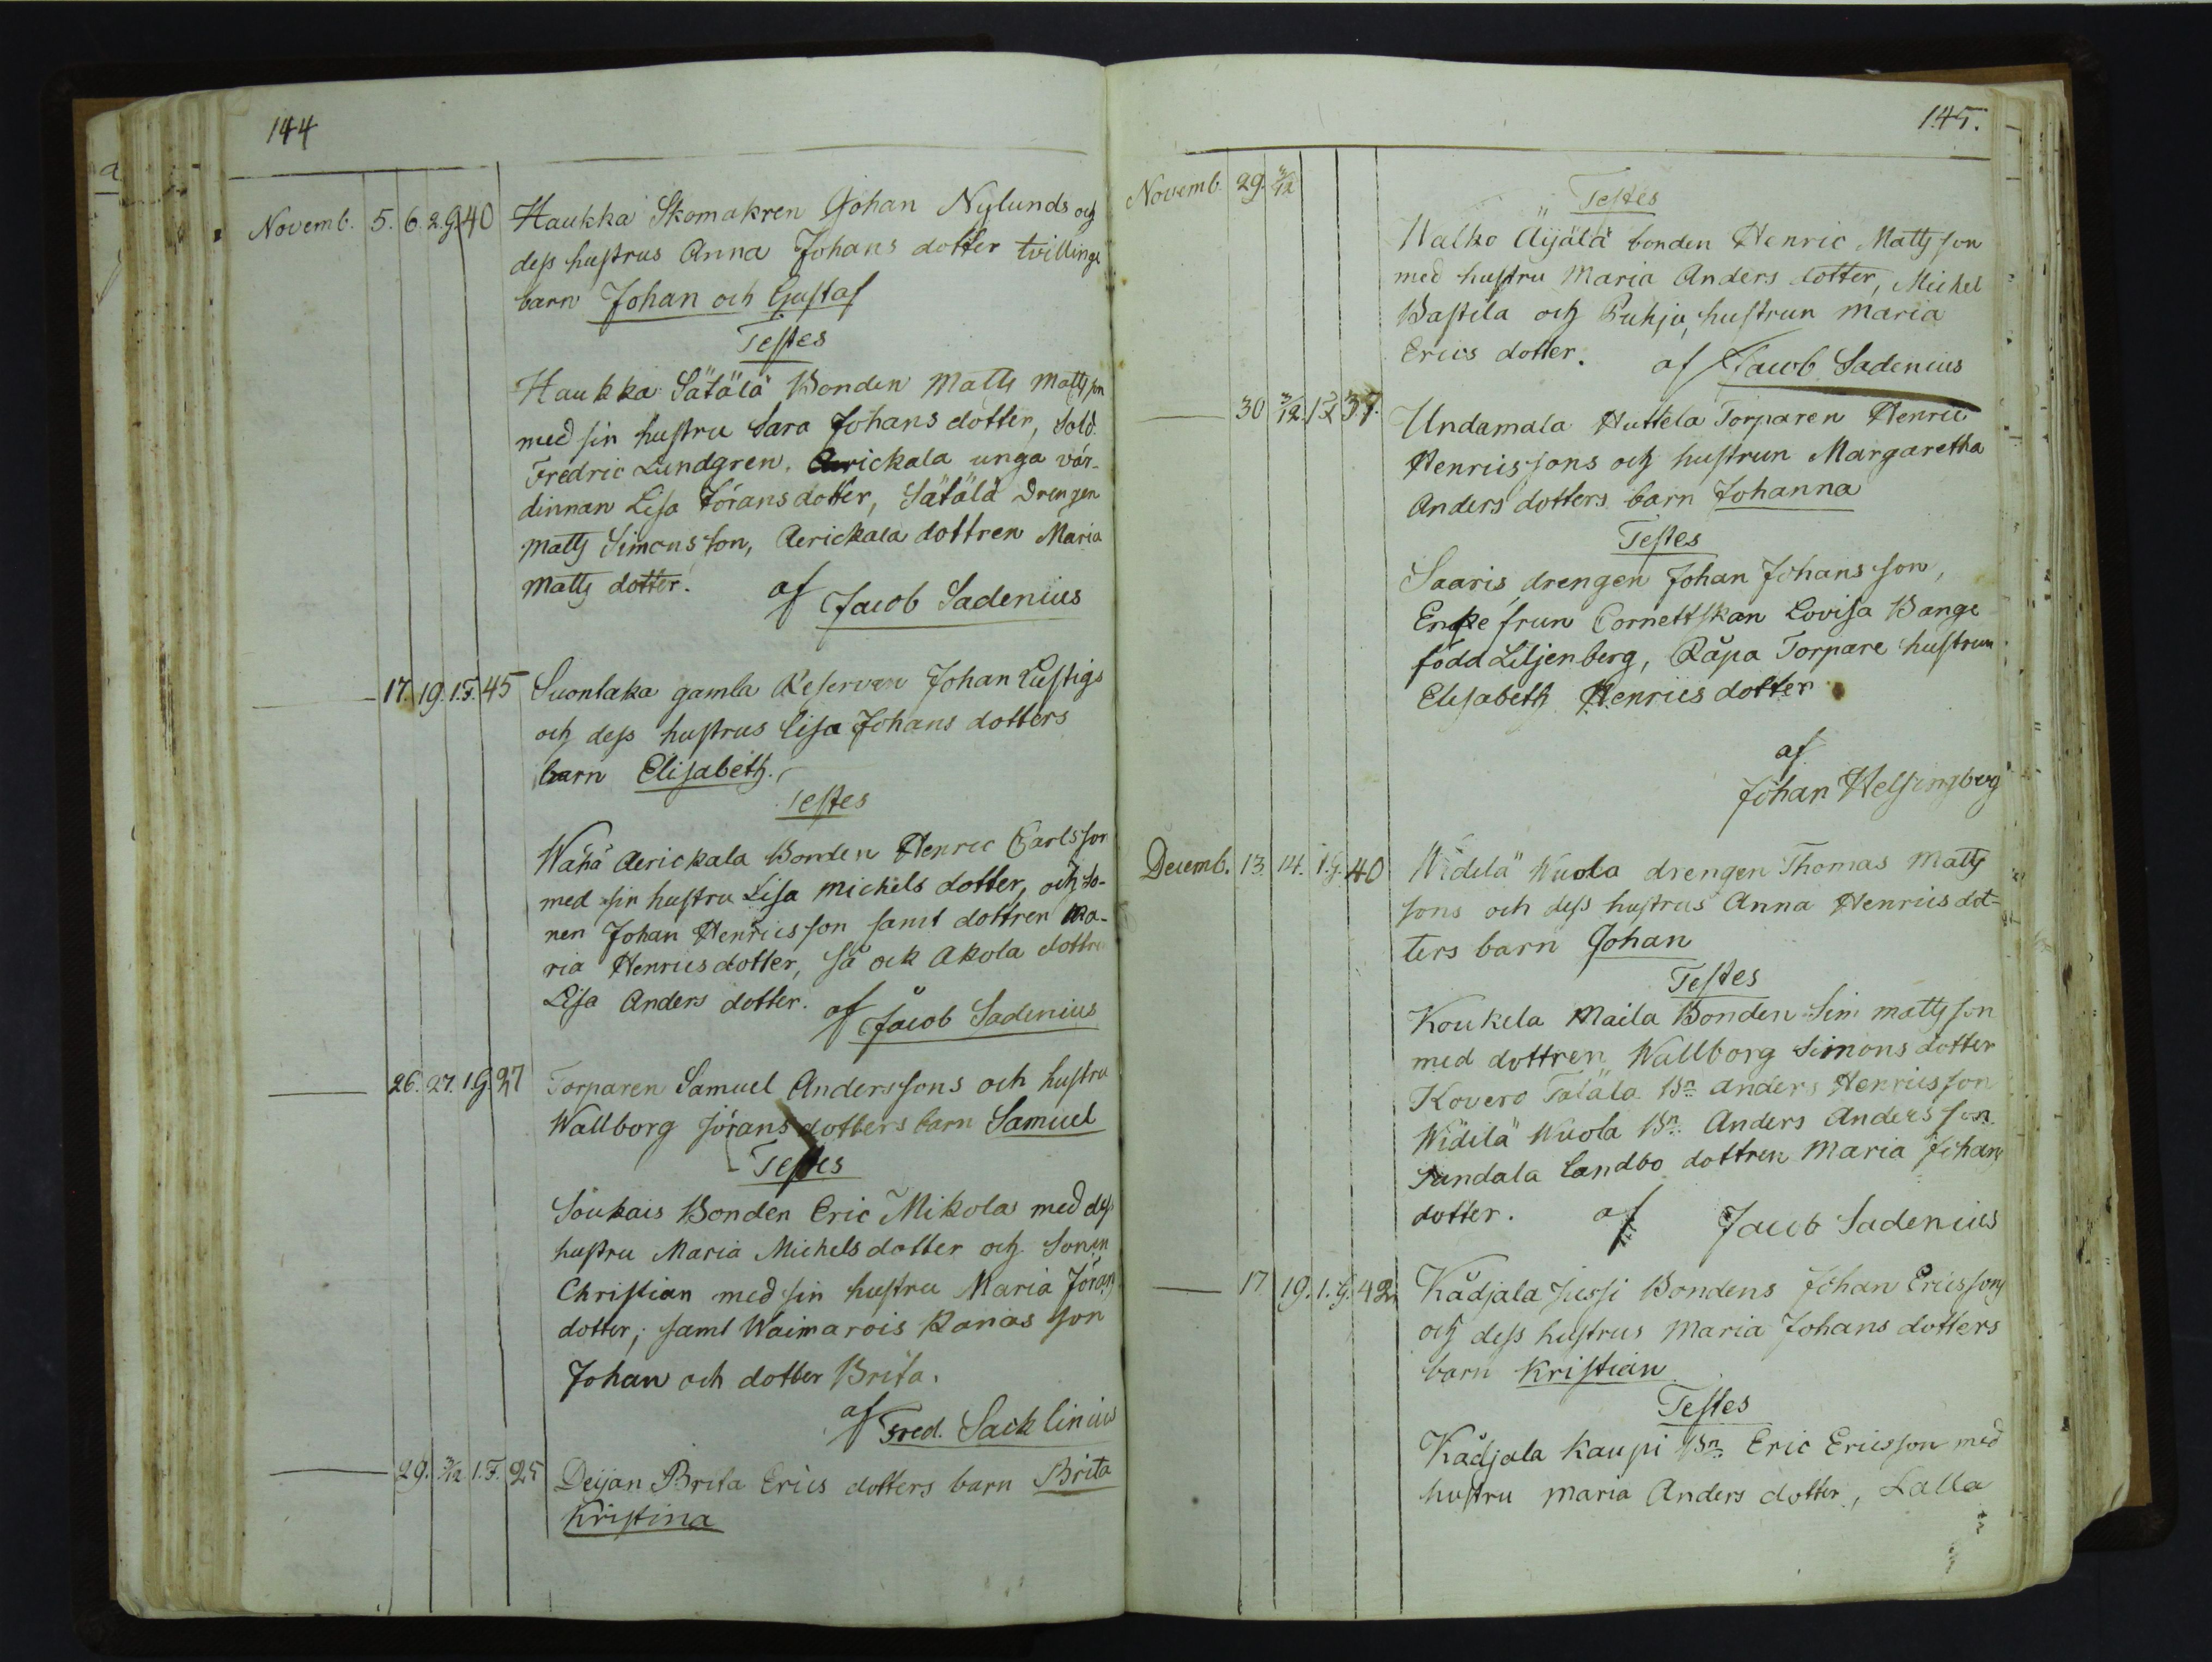 144
Novemb. 5. 6. 2.g. 40 Haukka Skomakren Johan Nylunds och
dess hustrus Anna Johans dotter tvillinge
barn Johan och Gustaf
Testes
Haukka Sätälä Bonden Matts Mattsson
med sin hustru Sara Johans dotter, Sold.
Fredric Lundgren. Aerickala unga vär-
dinnan Lisa Jörans dotter, Sätälä Drengen
Matts Simons son, Aerickala dottren Maria
Matts dotter. af Jacob Sadenius
17. 19. 1.F. 45 Suontaka gamla Reserven Johan Lustigs
och dess hustrus Lisa Johans dotters
barn Elisabeth.
Testes
Wähä Aerickala Bonden Henric Carlsson
med sin hustru Lisa Michels dotter, och So-
nen Johan Henricsson samt dottren Ma-
ria Henrics dotter, så ock Akola dottren
Lisa Anders dotter. af Jacob Sadenius
26. 27. 1.g 27 Torparen Samuel Anderssons och hustru
Wallborg Jörans dotters barn Samuel
Testes
Soukais Bonden Eric Mikola med dess
hustru Maria Michels dotter och Sonen
Christian med sin hustru Maria Jörans
dotter; samt Waimarois Ranas son
Johan och dotter Brita.
af Fred. Sacklinius
29. 3/12 1.F. 25 Deijan Brita Erics dotters barn Brita
Kristina
145.
Novemb. 29. 3/12
Testes
Walko Äijälä bonden Henric Mattsson
med hustru Maria Anders dotter, Michel
Bastila och Puhju, hustrun Maria
Erics dotter. af Jacob Sadenius
30 3/12. 1F 37. Undamala Huttela Torparen Henric
Henricssons och hustrun Margaretha
Anders dotters barn Johanna
Testes
Saaris drengen Johan Johansson,
Enke frun Cornettskan Lovisa Bange
född Liljenberg, Råpa Torpare hustrun
Elisabeth Henrics dotter
af
Johan Helsingberg
Decemb. 13. 14. 1.g. 40 Widilä Wuola drengen Thomas Matts
sons och dess hustrus Anna Henrics dot-
ters barn Johan
Testes
Koukela Maila Bonden Sim Mattsson
med dottren Wallborg Simons dotter
Kovero Talala Bn Anders Henricsson
Widilä Wuola Bn Anders Andersson
Tundala landbo dottren Maria Johans
dotter. af Jacob Sadenius
17 19. 1.g. 42 Kådjala Jussi Bondens Johan Ericssons
och dess hustrus Maria Johans dotters
barn Kristian
Testes
Kådjala Kaupi Bn Eric Ericsson med
hustru Maria Anders dotter, Lalla